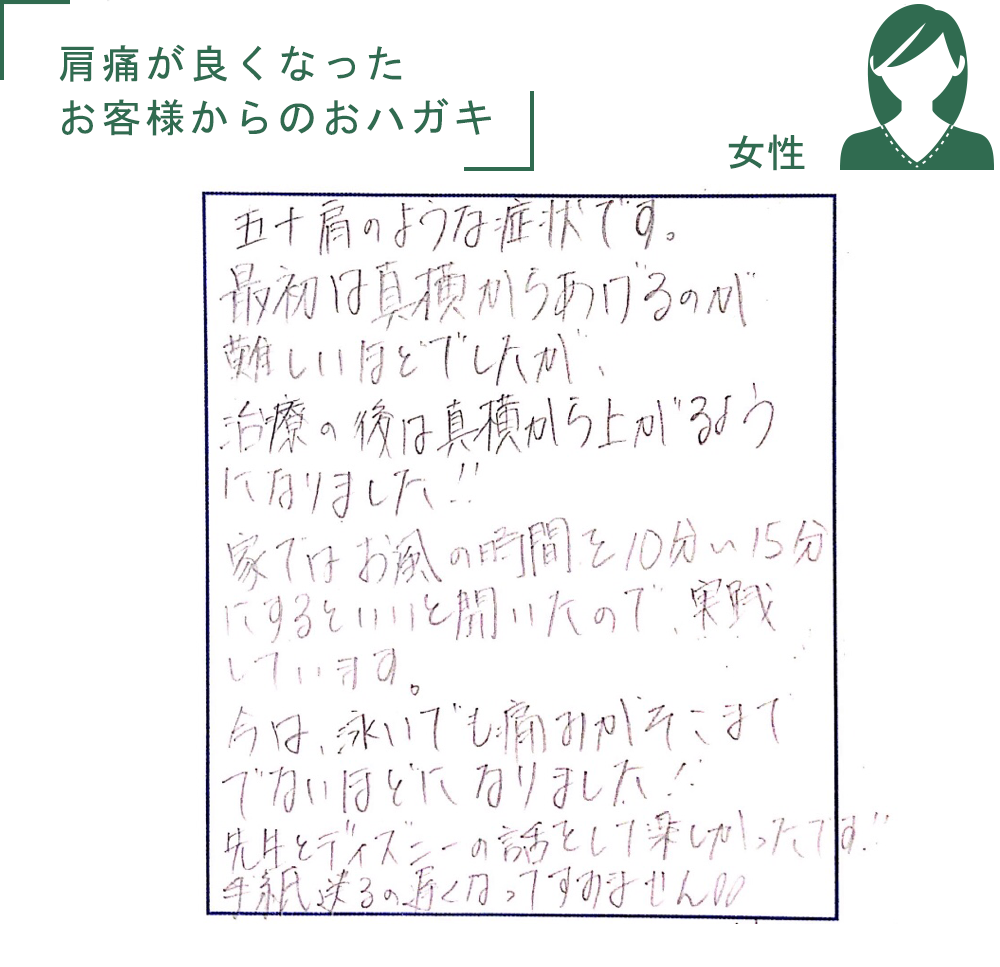 肩痛が良くなった
お客様からのおハガキ
女性
五十肩のような症状です。
最初は真横からあげるのが
難しいほどでしたが、
治療の後は真横から上がるよう
になりました!!
家ではお風の時間を10分~15分
にするといいと聞いたので、実践
しています。
今は、泳いでも痛みがそこまで
でないほどになりました!!
先生とディズニーの話をして楽しかったです!!
手紙送るの遅くなってすみません